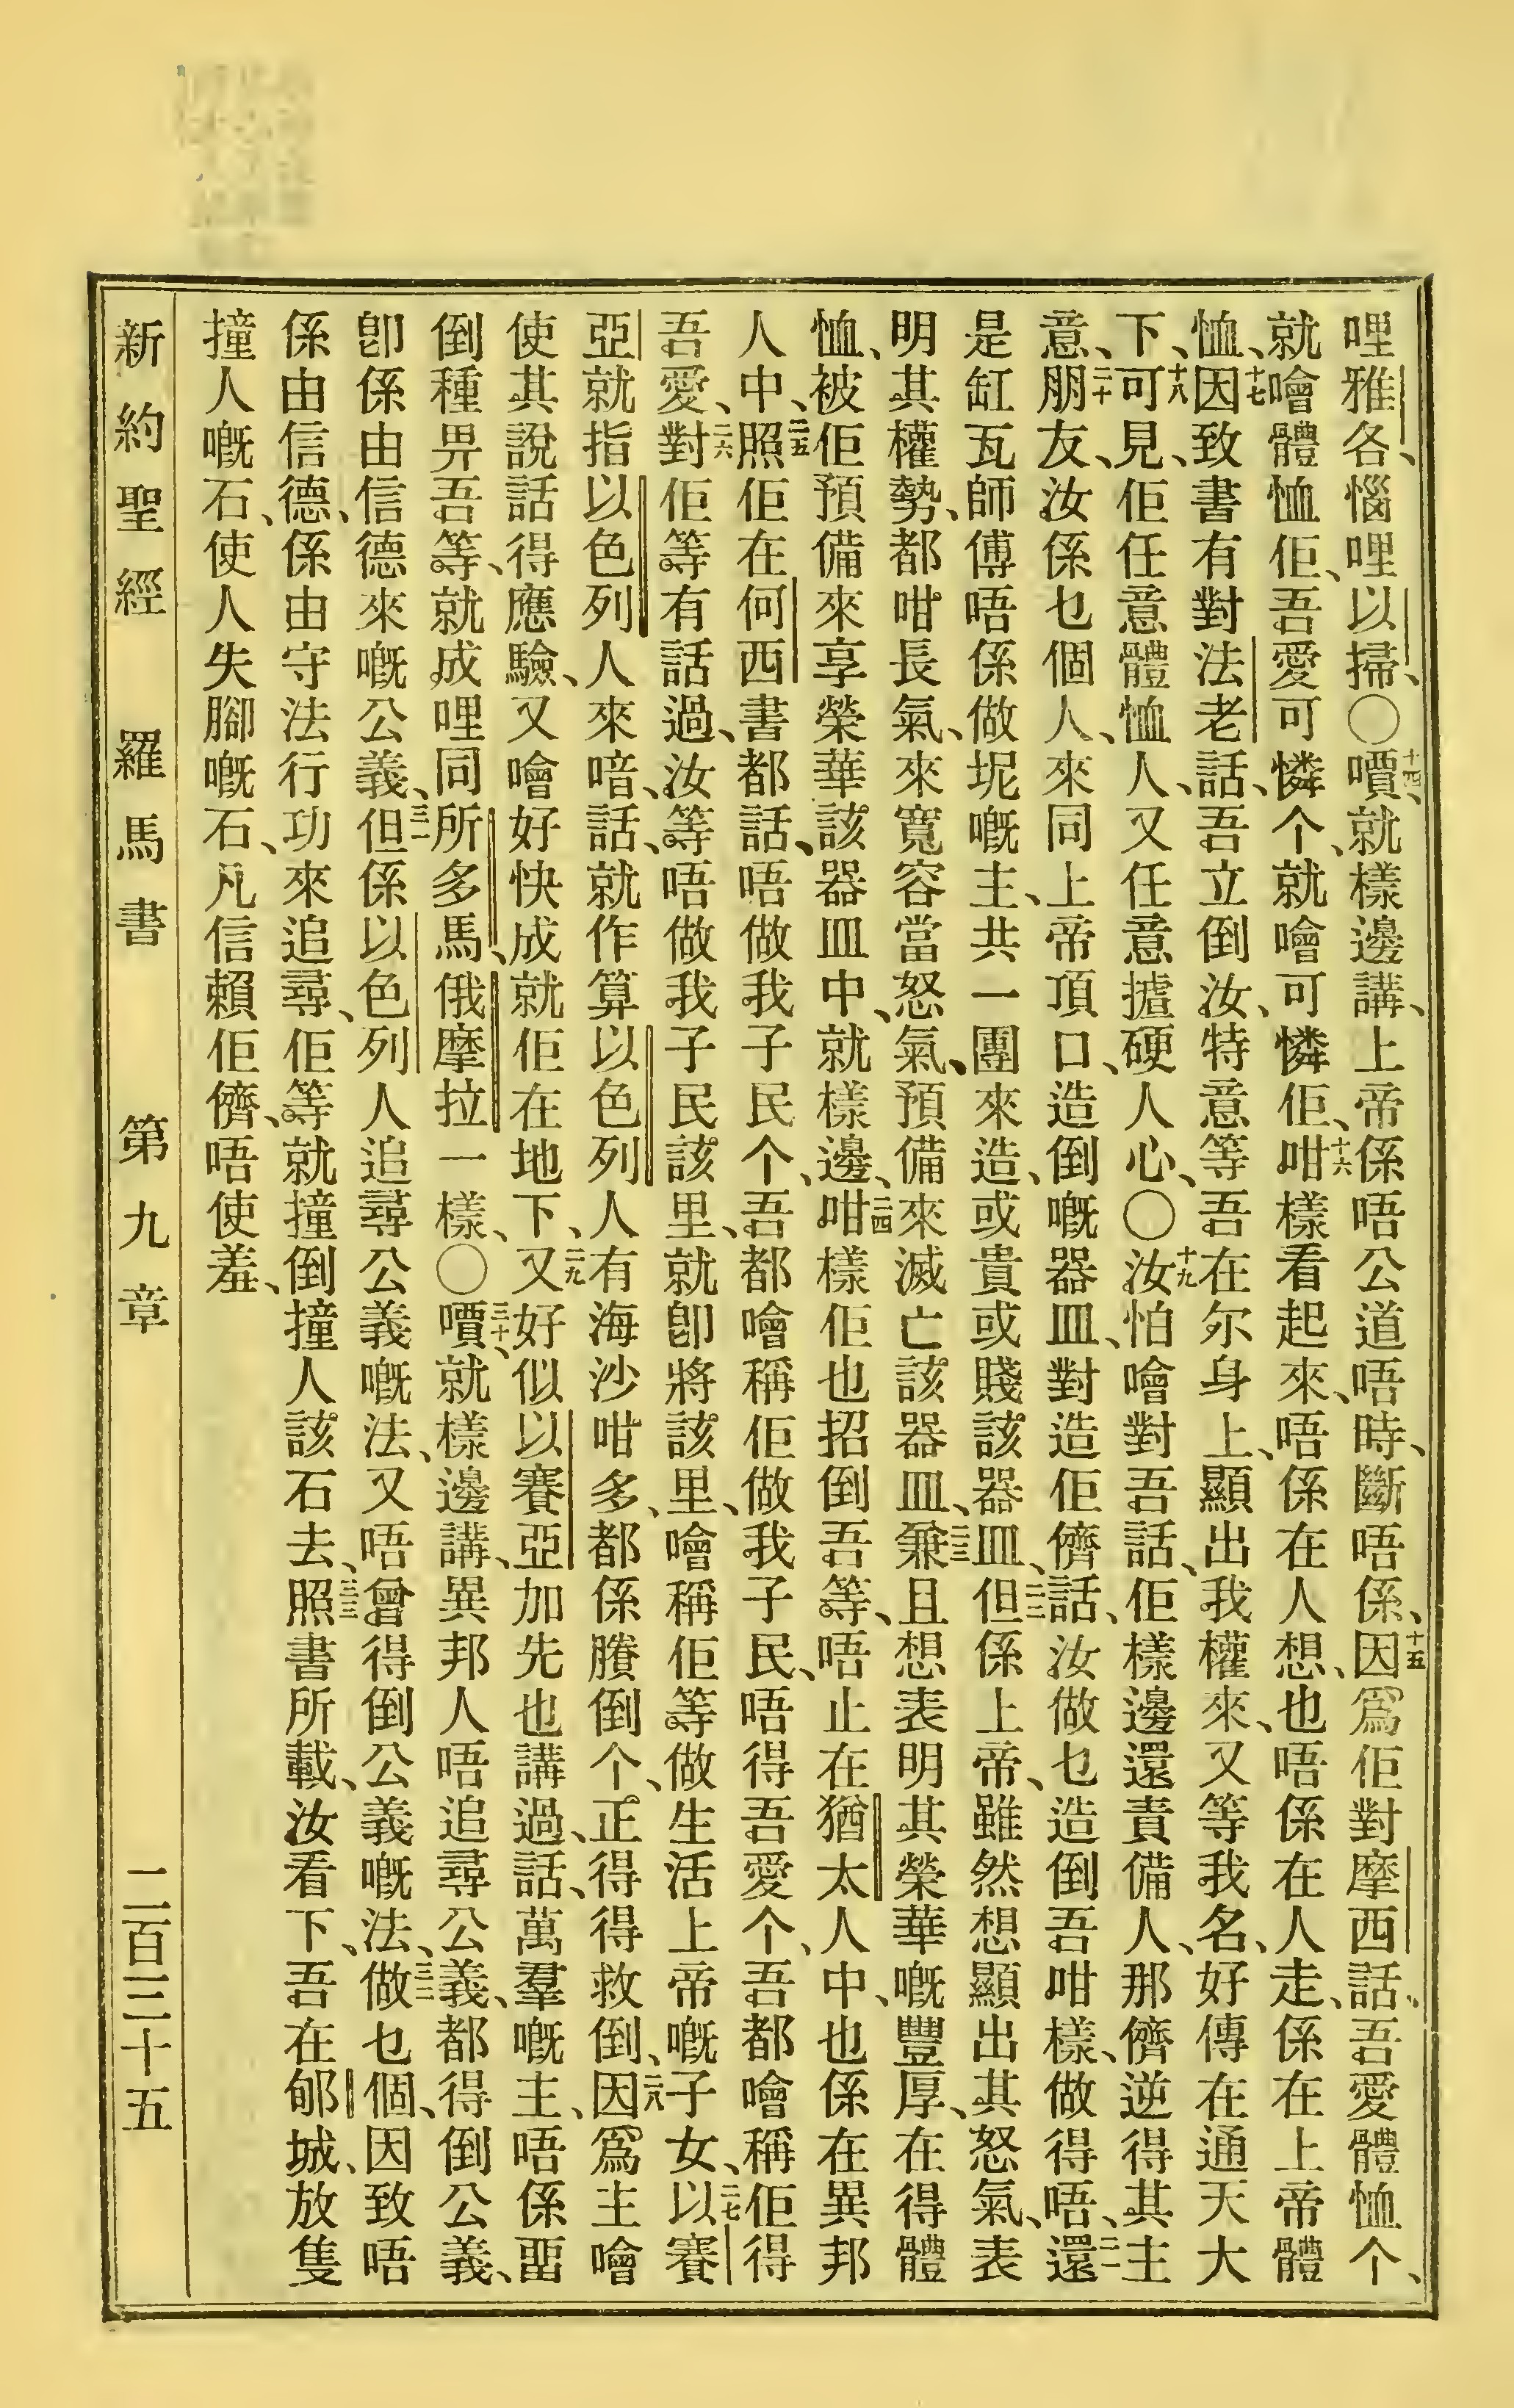 哩雅各、惱哩以掃、○十四嘳、就樣邊講、上帝係唔公道唔時、斷唔係、十五因爲佢對摩西話、吾愛體恤个、
就噲體恤佢、吾愛可憐个、就噲可憐佢、十六咁樣看起來、唔係在人想、也唔係在人走、係在上帝體
恤、十七因致書有對法老話、吾立倒汝、特意等吾在尔身上、顯出我權來、又等我名、好傳在通天大
下、十八可見、佢任意體恤人、又任意摣硬人心、○十九汝怕噲對吾話、佢樣邊還責備人、那儕逆得其主
意、二十朋友、汝係乜個人、來同上帝頂口、造倒嘅器皿、對造佢儕話、汝做乜造倒吾咁樣、做得唔、二一還
是缸瓦師傅唔係做坭嘅主、共一團來造、或貴或賤該器皿、二二但係上帝、雖然想顯出其怒氣、表
明其權勢、都咁長氣、來寬容當怒氣、預備來滅亡該器皿、二三兼且想表明其榮華嘅豐厚、在得體
恤、被佢預備來享榮華該器皿中、就樣邊、二四咁樣佢也招倒吾等、唔止在猶太人中、也係在異邦
人中、二五照佢在何西書都話、唔做我子民个、吾都噲稱佢做我子民、唔得吾愛个、吾都噲稱佢得
吾愛、二六對佢等有話過、汝等唔做我子民該里、就卽將該里、噲稱佢等做生活上帝嘅子女、二七以賽
亞就指以色列人來喑話、就作算以色列人有海沙咁多、都係賸倒个、正得得救倒、二八因爲主噲
使其說話得應驗、又噲好快成就佢在地下、二九又好似以賽亞加先也講過、話、萬羣嘅主、唔係畱
倒種畀吾等、就成哩同所多馬、俄摩拉一樣、○三十嘳、就樣邊講、異邦人唔追尋公義、都得倒公義、
卽係由信德來嘅公義、三一但係以色列人追尋公義嘅法、又唔曾得倒公義嘅法、三二做乜個、因致唔
係由信德、係由守法行功來追尋、佢等就撞倒撞人該石去、三三照書所載、汝看下、吾在郇城、放隻
撞人嘅石、使人失腳嘅石、凡信賴佢儕、唔使羞、
新約聖經　羅馬書　第九章　二百三十五